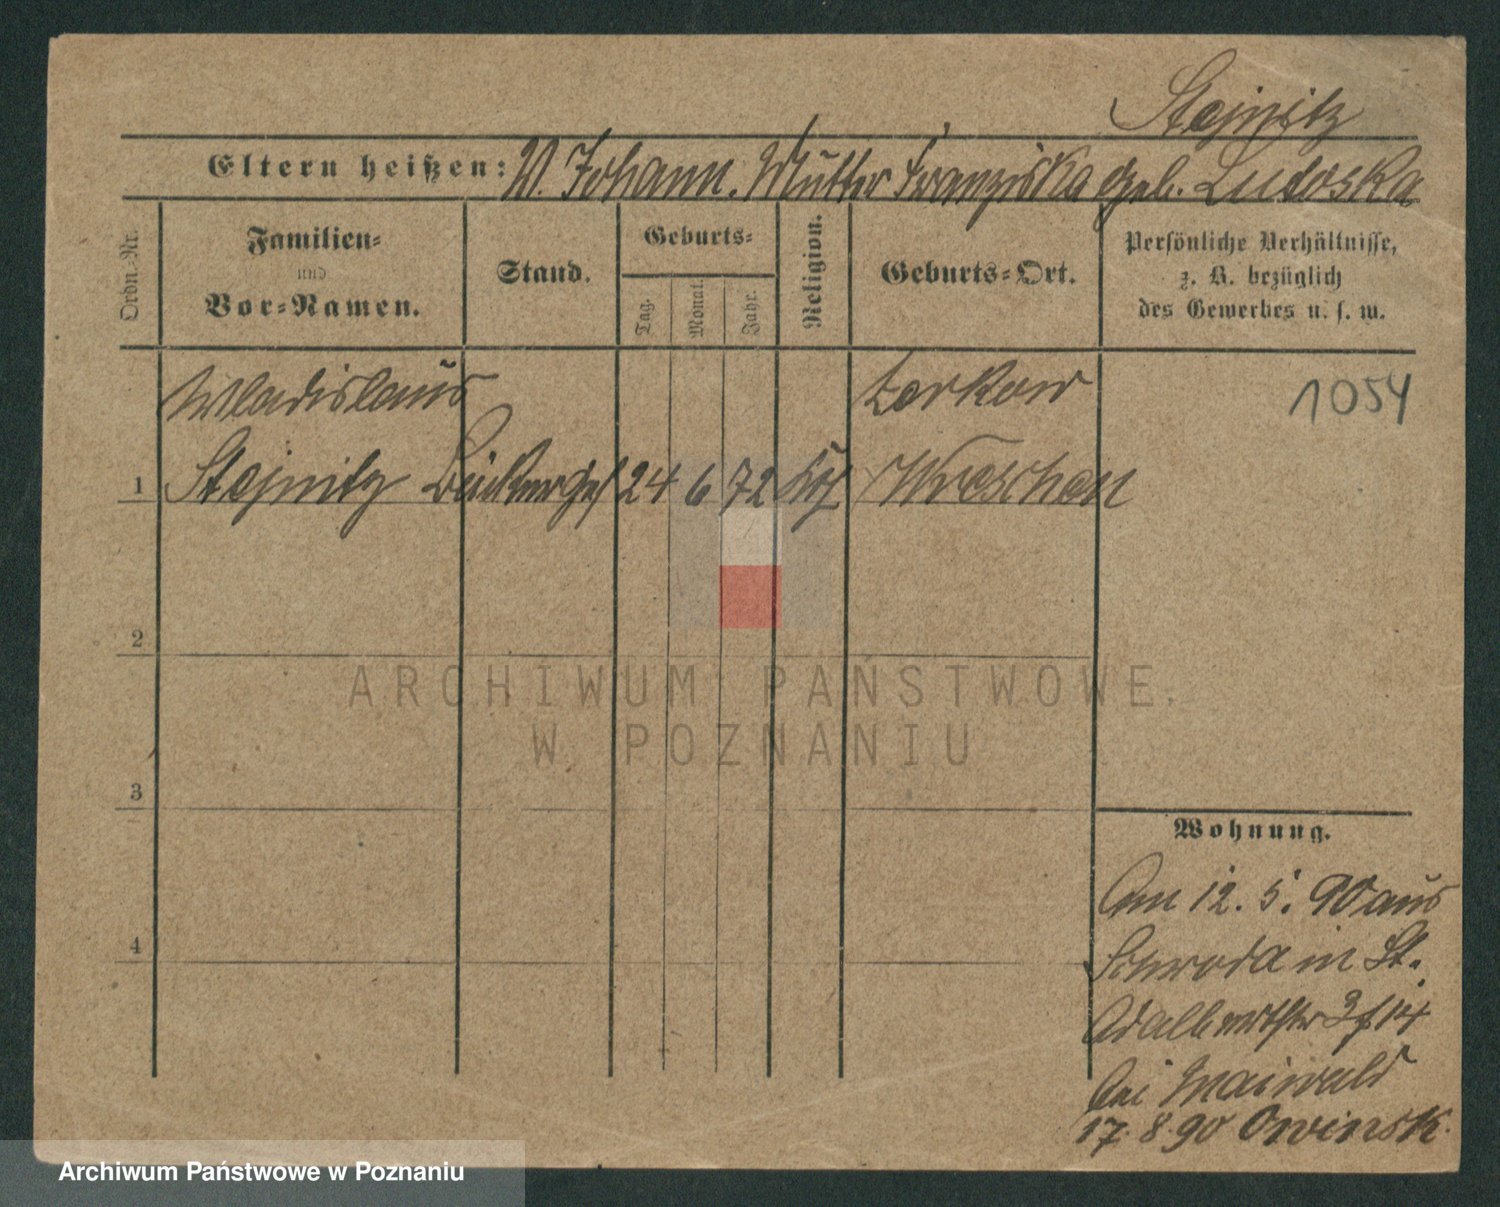 Stejnitz
Eltern heißen: V. Johann. Mutter Franziska geb. Ludoska
Ordn.-Nr.
Familien- und Vor-Namen.
Stand.
Geburts-
Tag.
Monat.
Jahr.
Religion.
Geburts-Ort.
Persönliche Verhältnisse,
z. B. bezüglich
des Gewerbes u. s. w.
Wladislaus
Zerkow
1054
1 Stejnitz Bäckerges 24 6 72 Kth Wreschen
2
3
4
Wohnung.
Am 12. 5. 90 aus
Schroda in St.
Adalbertstr 3 f 14
bei Maiwald
17. 8. 90 Owinsk.
ARCHIWUM PAŃSTWOWE
W POZNANIU
Archiwum Państwowe w Poznaniu